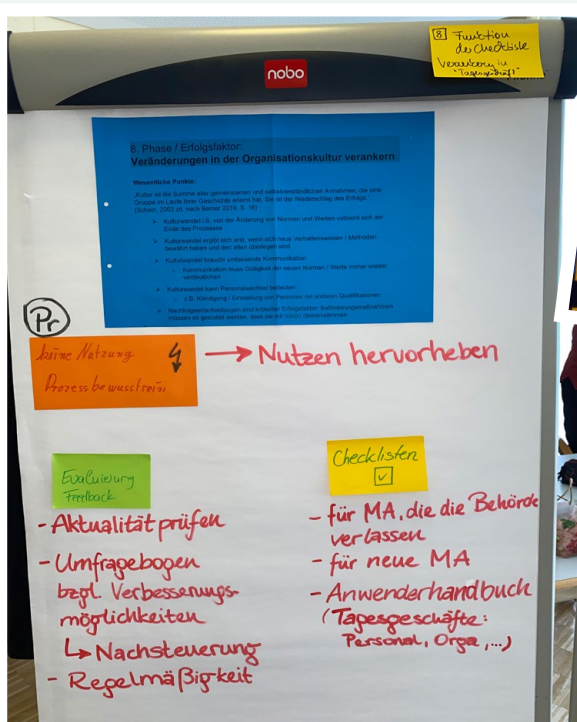 8 Funktion
der Checkliste
Verankerung in
"Tagesgeschäft"
nobo
8. Phase / Erfolgsfaktor:
Veränderungen in der Organisationskultur verankern
Wesentliche Punkte:
„Kultur ist die Summe aller gemeinsamen und selbstverständlichen Annahmen, die eine
Gruppe im Laufe ihrer Geschichte erlernt hat. Sie ist der Niederschlag des Erfolgs.“
(Schein, 2003 zit. nach Berner 2019, S. 16)
➢ Kulturwandel i.S. von der Änderung von Normen und Werten vollzieht sich am
Ende des Prozesses
➢ Kulturwandel ergibt sich erst, wenn sich neue Verhaltensweisen / Methoden
bewährt haben und den alten überlegen sind
➢ Kulturwandel braucht umfassende Kommunikation
○ Kommunikation muss Gültigkeit der neuen Normen / Werte immer wieder
verdeutlichen
➢ Kulturwandel kann Personalwechsel bedeuten
○ z.B. Kündigung / Einstellung von Personen mit anderen Qualifikationen
➢ Nachfolgeentscheidungen sind kritischer Erfolgsfaktor: Beförderungsmaßnahmen
müssen so gestaltet werden, dass sie mit Vision übereinstimmen
Pr
keine Nutzung
Prozessbewusstsein
→ Nutzen hervorheben
Evaluierung
Feedback
- Aktualität prüfen
- Umfragebogen
bzgl. Verbesserungs-
möglichkeiten
↳ Nachsteuerung
- Regelmäßigkeit
Checklisten
☑
- für MA, die die Behörde
verlassen
- für neue MA
- Anwenderhandbuch
(Tagesgeschäfte:
Personal, Orga,...)